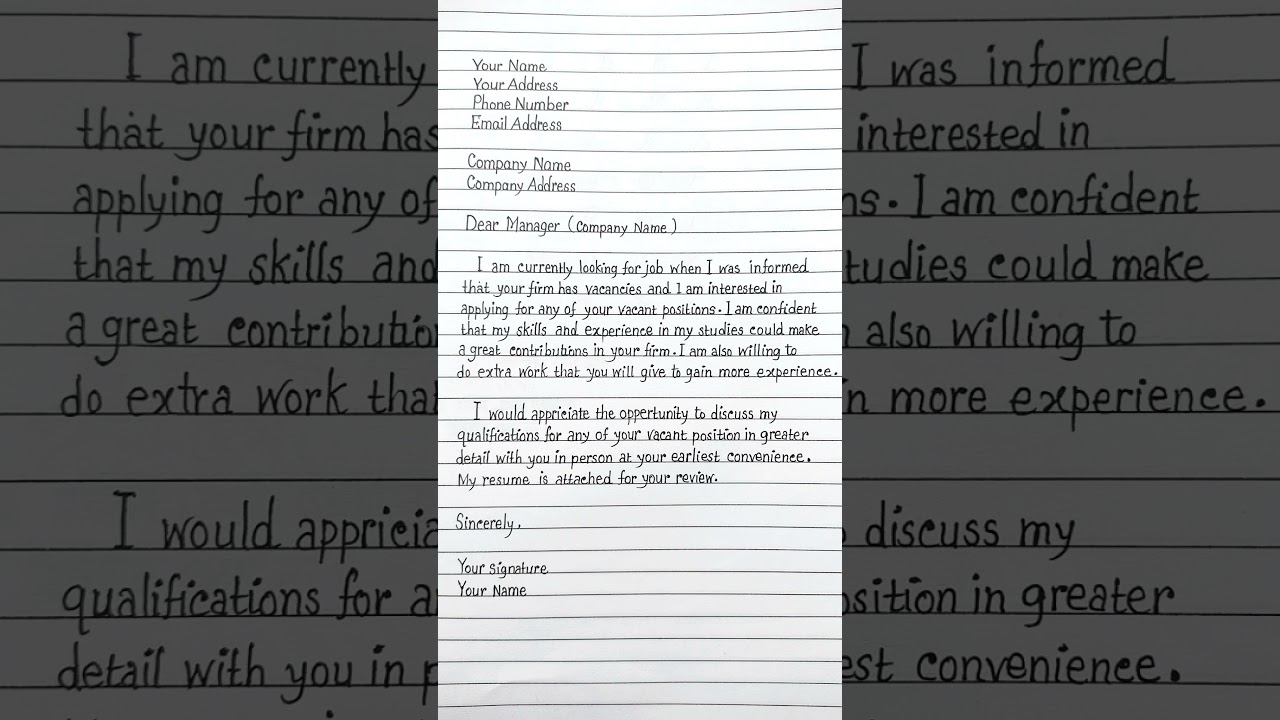 Your Name
Your Address
Phone Number
Email Address
Company Name
Company Address
Dear Manager (Company Name)
I am currently looking for job when I was informed
that your firm has vacancies and I am interested in
applying for any of your vacant positions. I am confident
that my skills and experience in my studies could make
a great contributions in your firm. I am also willing to
do extra work that you will give to gain more experience.
I would appriciate the oppertunity to discuss my
qualifications for any of your vacant position in greater
detail with you in person at your earliest convenience.
My resume is attached for your review.
Sincerely,
Your signature
Your Name